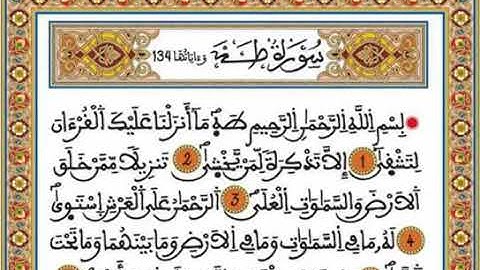 سورة طه وءاياتها 134
بسم الله الرحمن الرحيم طه ما أنزلنا عليك القرءان
لتشقى 1 إلا تذكرة لمن يخشى 2 تنزيلا ممن خلق
الارض والسموات العلى 3 الرحمن على العرش استوى
4 له ما في السموات وما في الارض وما بينهما وما تحت